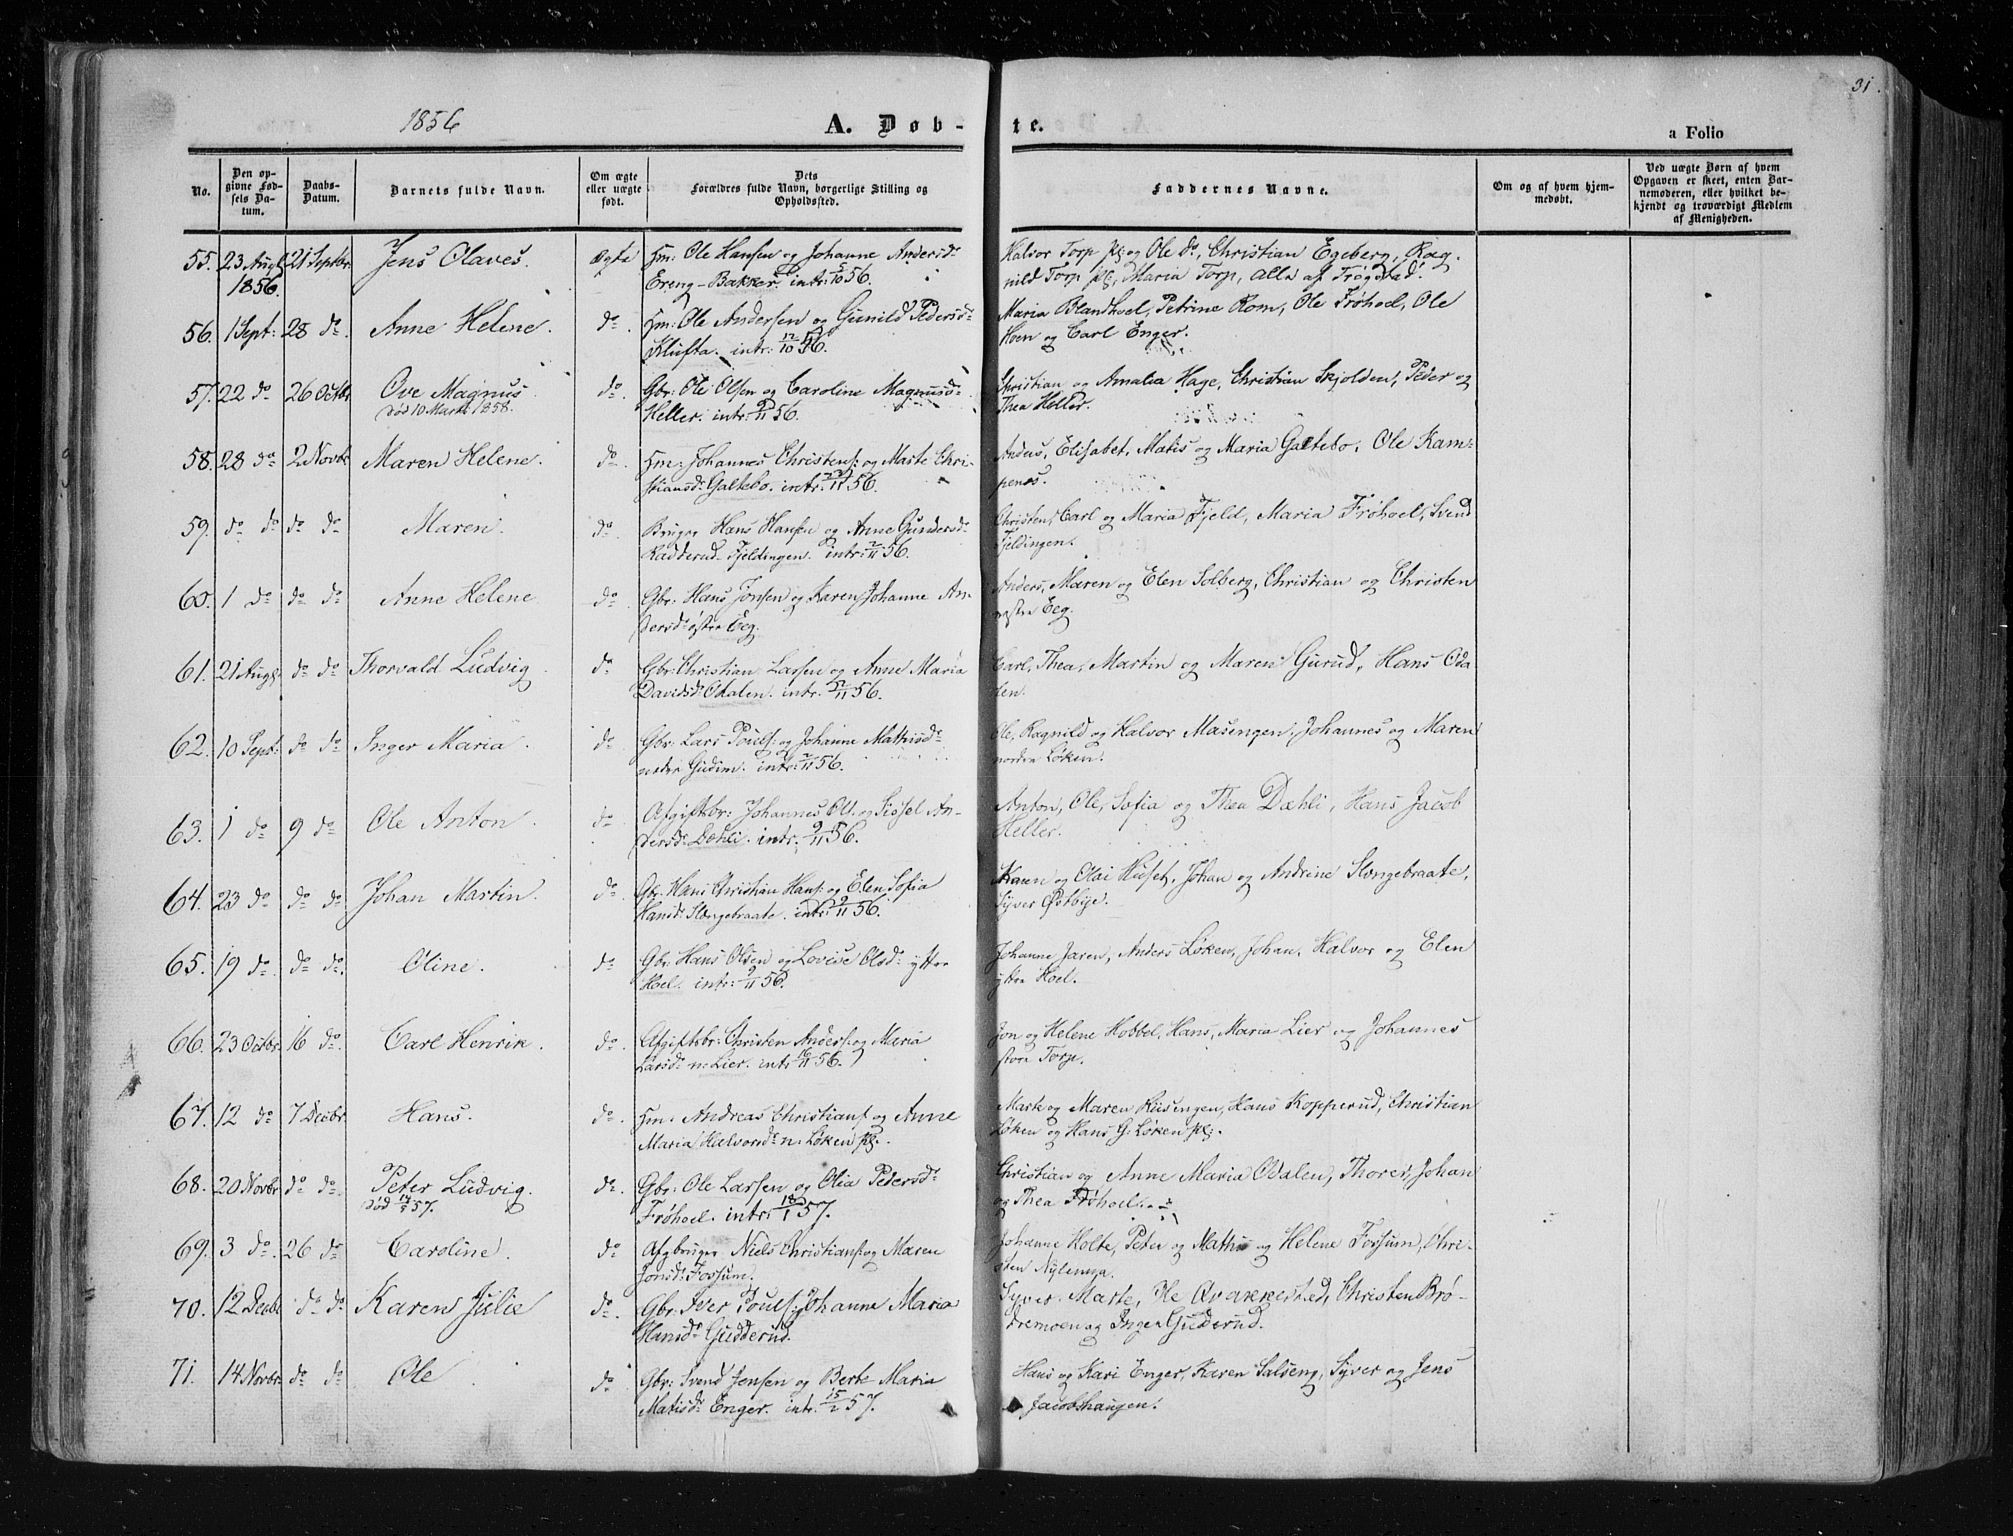 31.
1856
A. Døb- te.
a Folio
No.
Den op-
givne Fød-
sels Da-
tum.
Daabs-
Datum.
Barnets fulde Navn.
Om ægte
eller uægte
født.
Dets
Forældres fulde Navn, borgerlige Stilling og
Opholdssted.
Faddernes Navne.
Om og af hvem hjem-
medøbt.
Ved uægte Børn af hvem
Opgaven er skeet, enten Bar-
nemoderen, eller hvilket be-
kjendt og troværdigt Medlem
af Menigheden.
55. 23 Augt 21 Septbr. Jens Olaves. ægte Hm: Ole Hansen og Johanne Andersd: Halvor Torp pl: og Ole do, Christian Egeberg, Rag-
1856. Ereng-Bakker. intr: 5/10 56. nild Torp pl:, Maria Torp, alle af Trøgstad.
56. 1 Sept: 28 do. Anne Helene. do. Hm: Ole Andersen og Gunild Pedersd: Maria Blandhoel, Petrine Rom, Ole Frøhoel, Ole
Klufta. intr: 12/10 56. Hoen og Carl Enger.
57. 22 do 26 Octbr Ove Magnus do. Gbr: Ole Olsen og Caroline Magnusd: Christian og Amalia Hage, Christian Skjolden, Peder og
død 10 Marts 1858. Heller. intr: 2/11 56. Thea Heller.
58. 28 do 2 Novbr Maren Helene. do. Hm: Johannes Christens: og Marte Chri- Anders, Elisabet, Matis og Maria Galtebo, Ole Kam-
stiansd: Galtebo. intr: 11 56. penes.
59. do do do do Maren. do. Bruger Hans Hansen og Anne Gundersd: Christen, Carl og Maria Fjeld, Maria Frøhoel, Svend
Radderud-Fjeldingen. intr: 2/11 56. Fjeldingen.
60. 1 do do do Anne Helene do. Gbr: Hans Jonsen og Karen Johanne An- Anders, Maren og Elen Solberg, Christian og Christen
dersd: østre Eeg. østre Eeg.
61. 21 Augt. do do Thorvald Ludvig do. Gbr: Christian Larsen og Anne Maria Carl, Thea, Martin og Maren Gurud, Hans Oda-
Davidsd: Odalen. intr. 2/11 56. len.
62. 10 Sept: do do Inger Maria. do Gbr: Lars Pouls: og Johanne Mathisd: Ole, Ragnild og Halvor Masengen, Johannes og Maren
nedre Gudim. intr: 2/11 56. nordre Løken.
63. 1 do 9 do Ole Anton. do. Afgiftsbr: Johannes Ols. og Sissel An- Anton, Ole, Sofia og Thea Dæhli, Hans Jacob
dersd: Dæhli. intr: 9/11 56. Heller.
64. 23 do do do Johan Martin. do. Gbr: Hans Christian Hans: og Elen Sofia Karen og Olai Huset, Johan og Andrine Slengebraate,
Hansd: Slengebraate. intr: 9/11 56. Syver Østbye.
65. 19 do. do do. Oline. do Gbr: Hans Olsen og Lovise Olsd: yttre Johanne Jaren, Anders Løken, Johan, Halvor og Elen
Hoel. intr: 9/11 56. yttre Hoel.
66. 23 Octbr. 16 do. Carl Henrik. do. Afgiftsbr: Christen Anders: og Maria Jon og Helene Hobbel, Hans, Maria Lier og Johannes
Larsd: n: Lier. intr 16/11 56. store Torp.
67. 12 do 7 Decbr Hans. do. Hm: Andreas Christians: og Anne Marte og Maren Riisengen, Hans Kopperud, Christian
Maria Halvorsd: n: Løken pl:. Løken og Hans G: Løken pl:.
68. 20 Novbr do do. Peter Ludvig. do. Gbr: Ole Larsen og Olia Pedersd: Christian og Anne Maria Odalen, Thorer, Johan
død 57. Frøhoel. intr: 18/1 57. og Thea Frøhoel.
69. 3 do. 26 do Caroline. do Afgbruger Niels Christians: og Maren Johanne Holte, Peter og Mathis og Helene Fossum, Chri-
Jonsd: Fossum. sten Nylenna.
70. 12 Decbr do do. Karen Julie do. Gbr: Iver Pouls: Johanne Maria Syver, Marte, Ole Qvakkestad, Christen Brø-
Hansd: Gudderud. dremoen og Inger Gudderud.
71. 14 Novbr do do Ole do. Gbr: Svend Jensen og Berte Maria Hans og Kari Enger, Karen Salseng, Syver og Jens
Matisd: Enger. intr. 15/2 57. Jacobshaugen.